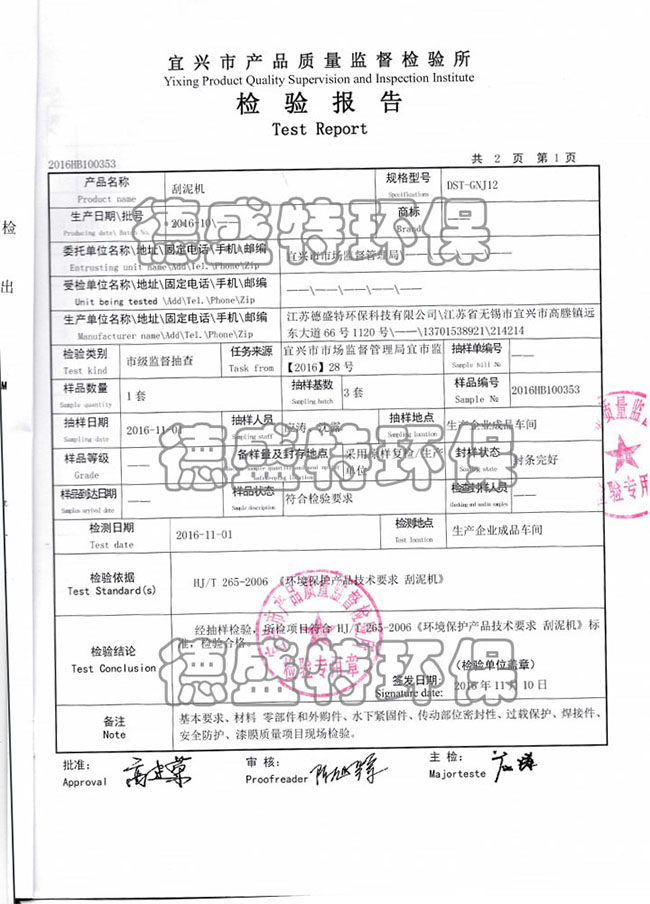 宜兴市产品质量监督检验所
Yixing Product Quality Supervision and Inspection Institute
检验报告
Test Report
2016HB100353 共 2 页 第 1 页
产品名称 刮泥机 规格型号 DST-GNJ12
Product name Specifications
生产日期\批号 2016-10\ 商标
Producing date\ Batch No. Brand
德盛特环保
委托单位名称\地址\固定电话\手机\邮编 宜兴市市场监督管理局\
Entrusting unit name\Add\Tel.\Phone\Zip
受检单位名称\地址\固定电话\手机\邮编 ——\——\——\——\——
Unit being tested \Add\Tel.\Phone\Zip
生产单位名称\地址\固定电话\手机\邮编 江苏德盛特环保科技有限公司\江苏省无锡市宜兴市高塍镇远
Manufacturer name\Add\Tel.\Phone\Zip 东大道 66 号 1120 号\——\13701538921\214214
检验类别 市级监督抽查 任务来源 宜兴市市场监督管理局宜市监 抽样单编号 ——
Test kind Task from 【2016】28 号 Sample bill №
样品数量 1 套 抽样基数 3 套 样品编号 2016HB100353
Sample quantity Sampling batch Sample №
抽样日期 2016-11-01 抽样人员 抽样地点 生产企业成品车间
Sampling date Sampling staff Sampling location
德盛特环保
样品等级 —— 备样量及封存地点 采用原样复检/生产 封样状态 封条完好
Grade 单位 Sealing state
样品到达日期 —— 样品状态 符合检验要求 检查封样人员 ——
Samples arrival date Sample description
检测日期 2016-11-01 检测地点 生产企业成品车间
Test date Test location
检验依据 HJ/T 265-2006 《环境保护产品技术要求 刮泥机》
Test Standard(s)
检验结论 经抽样检验，所检项目符合 HJ/T 265-2006《环境保护产品技术要求 刮泥机》标
Test Conclusion 准，检验合格。
德盛特环保
(检验单位盖章)
签发日期: 2016 年 11 月 10 日
Signature date:
宜兴市产品质量监督检验所
检验专用章
备注 基本要求、材料 零部件和外购件、水下紧固件、传动部位密封性、过载保护、焊接件、
Note 安全防护、漆膜质量项目现场检验。
批准: 审 核: 主 检:
Approval Proofreader Majorteste
检
出
M
质量监
验专用